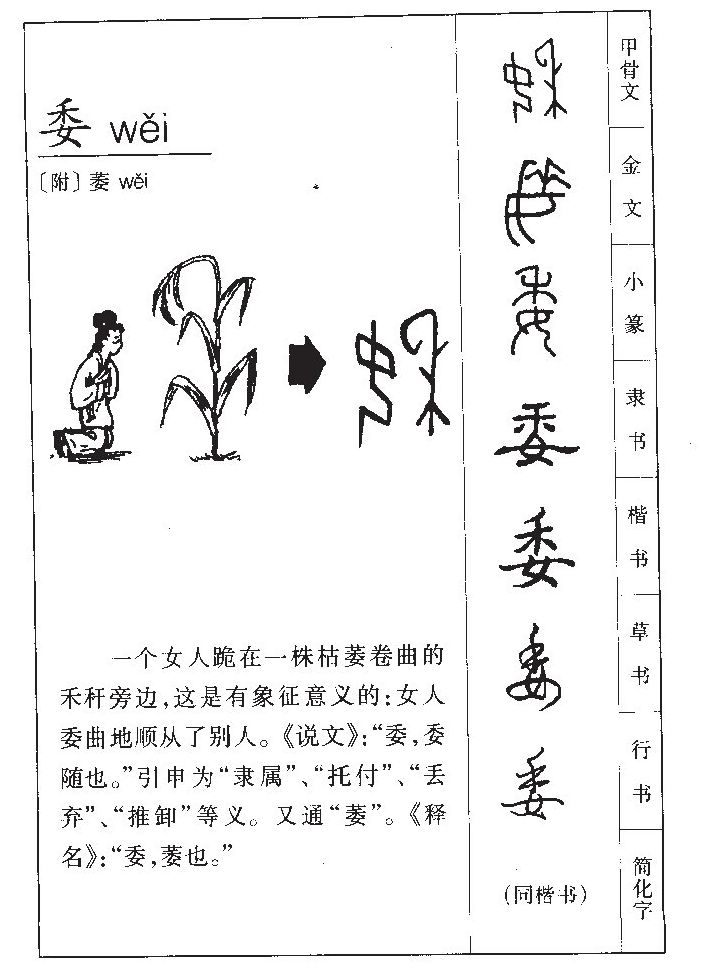 委 wěi
〔附〕萎 wěi
一个女人跪在一株枯萎卷曲的
禾秆旁边,这是有象征意义的:女人
委曲地顺从了别人。《说文》:“委,委
随也。”引申为“隶属”、“托付”、“丢
弃”、“推卸”等义。又通“萎”。《释
名》:“委,萎也。”
甲骨文
金文
小篆
隶书
委
楷书
委
草书
委
行书
委
简化字
(同楷书)